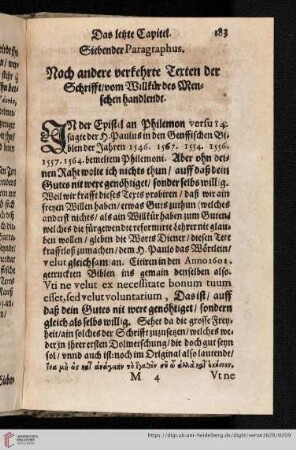 Das letzte Capitel.
183
Siebender Paragraphus.
Noch andere verkehrte Texten der
Schrifft/vom Willkür des Men-
schen handlendt.
IN der Epistel an Philemon versu 14.
sagte der H. Paulus in den Genffischen Bi-
blen der Jahren 1546. 1567. 1554. 1556.
1557. 1564. bemeltem Philemoni. Aber ohn dei-
nen Raht wolte ich nichts thun / auff daß dein
Gutes nit were genöhtiget/ sonder selbs willig.
Weil wir krafft dieses Texts probiren / daß wir ain
freyen Willen haben / etwas Guts zuthun (welches
anderst nichts / als ain Willkür haben zum Guten/
welches die fürgewendte reformirte Lehrer nit glau-
ben wollen / gieben die Worts Diener / diesen Text
krafftloß zumachen / dem H. Paulo das Wörtlein/
velut gleichsam an. Citirn in den Anno 1601.
getruckten Biblen ins gemain denselben also.
Vti ne velut ex necessitate bonum tuum
esset, sed velut voluntarium, Das ist / auff
daß dein Gutes nit were genöhtiget / sondern
gleich als selbs willig. Sehet da die grosse Frey-
heit / ain solches der Schrifft zuzusetzen / welches we-
der zu ihrer ersten Dolmetschung / die doch gut seyn
sol / vnnd auch ist noch im Original also lautende/
ἵνα μὴ ὡς κατ' ἀνάγκην τὸ ἀγαθόν σου ᾖ ἀλλὰ κατ' ἑκούσιον.
M 4
Vt ne
https://digi.ub.uni-heidelberg.de/diglit/weiss1628/0209